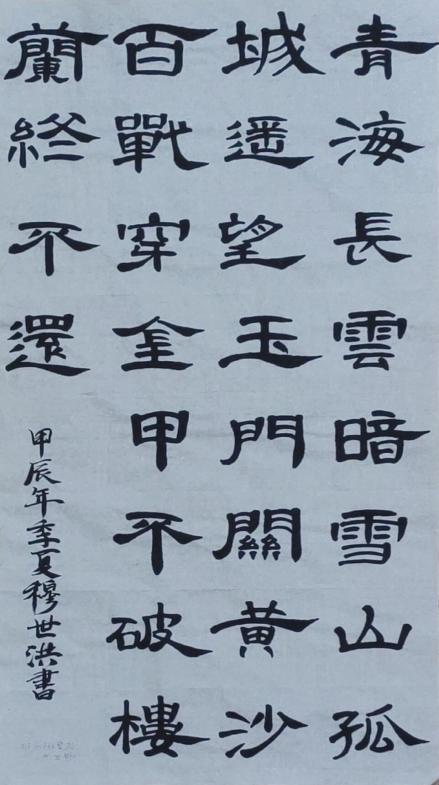 青海長雲暗雪山孤
城遥望玉門關黄沙
百戰穿金甲不破樓
蘭終不還
甲辰年季夏穆世洪書